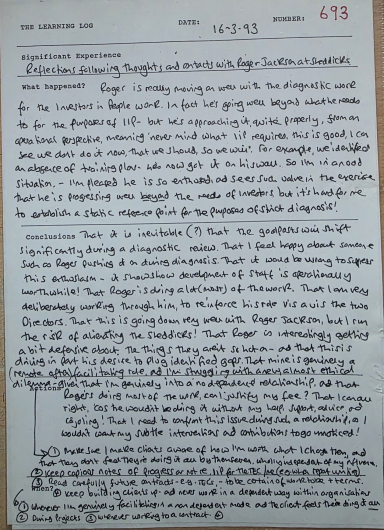 THE LEARNING LOG
DATE: 16-3-93
NUMBER: 693
Significant Experience
Reflections following thoughts and contacts with Roger Jackson at Sheddicks
What happened? Roger is really moving on well with the diagnostic work
for the Investors in People work. In fact he's going well beyond what he needs
to for the purposes of IIP - but he's approaching it, quite properly, from an
operational perspective, meaning never mind what IIP requires, this is good, I can
see we don't do it now, that we should, so we will. For example, we identified
an absence of training plan - he's now got it on his wall. So I'm in a odd
situation, - I'm pleased he is so enthused, and sees such value in the exercise
that he is progressing well beyond the needs of Investors but it's hard for me
to establish a static reference point for the purposes of strict diagnosis!
Conclusions That it is inevitable (?) that the goalposts will shift
significantly during a diagnostic review. That I feel happy about someone
such as Roger pushing it on during diagnosis. That it would be wrong to suppress
this enthusiasm - it shows how development of staff is operationally
worthwhile! That Roger is doing a lot (most) of the work. That I am very
deliberately working through him, to reinforce his role vis a vis the two
Directors. That this is going down very well with Roger Jackson, but I run
the risk of alienating the Sheddicks! That Roger is interestingly getting
a bit defensive about the things they aren't so hot on - and that this is
driving in part his desire to plug identified gaps. That mine is genuinely a
(remote often) facilitating role, and I'm struggling with a new almost ethical
dilemma - given that I'm genuinely into a no dependence relationship, and that
Actions
Roger's doing most of the work, can I justify my fee? That I can all
right, 'cos he wouldn't be doing it without my help, support, advice and
cajoling! That I need to confront this issue during such a relationship, as I
wouldn't want my subtle interventions and contributions to go unnoticed!
① Make sure I make clients aware of how I'm working, what I change on, and
that they don't feel they're doing it all by themselves, wholly independent of my influence.
② Keep copious notes of progress or not re. IIP for the TEC (see also what report writing)
③ Read carefully future contracts - e.g. TECs, - to be certain of work role + terms.
When? ④ Keep building clients up - and never work in a dependent way within organisations
① Whenever I'm genuinely facilitating in a non dependent mode and the client feels they're doing it all
② During projects ③ whenever working to a contract ④